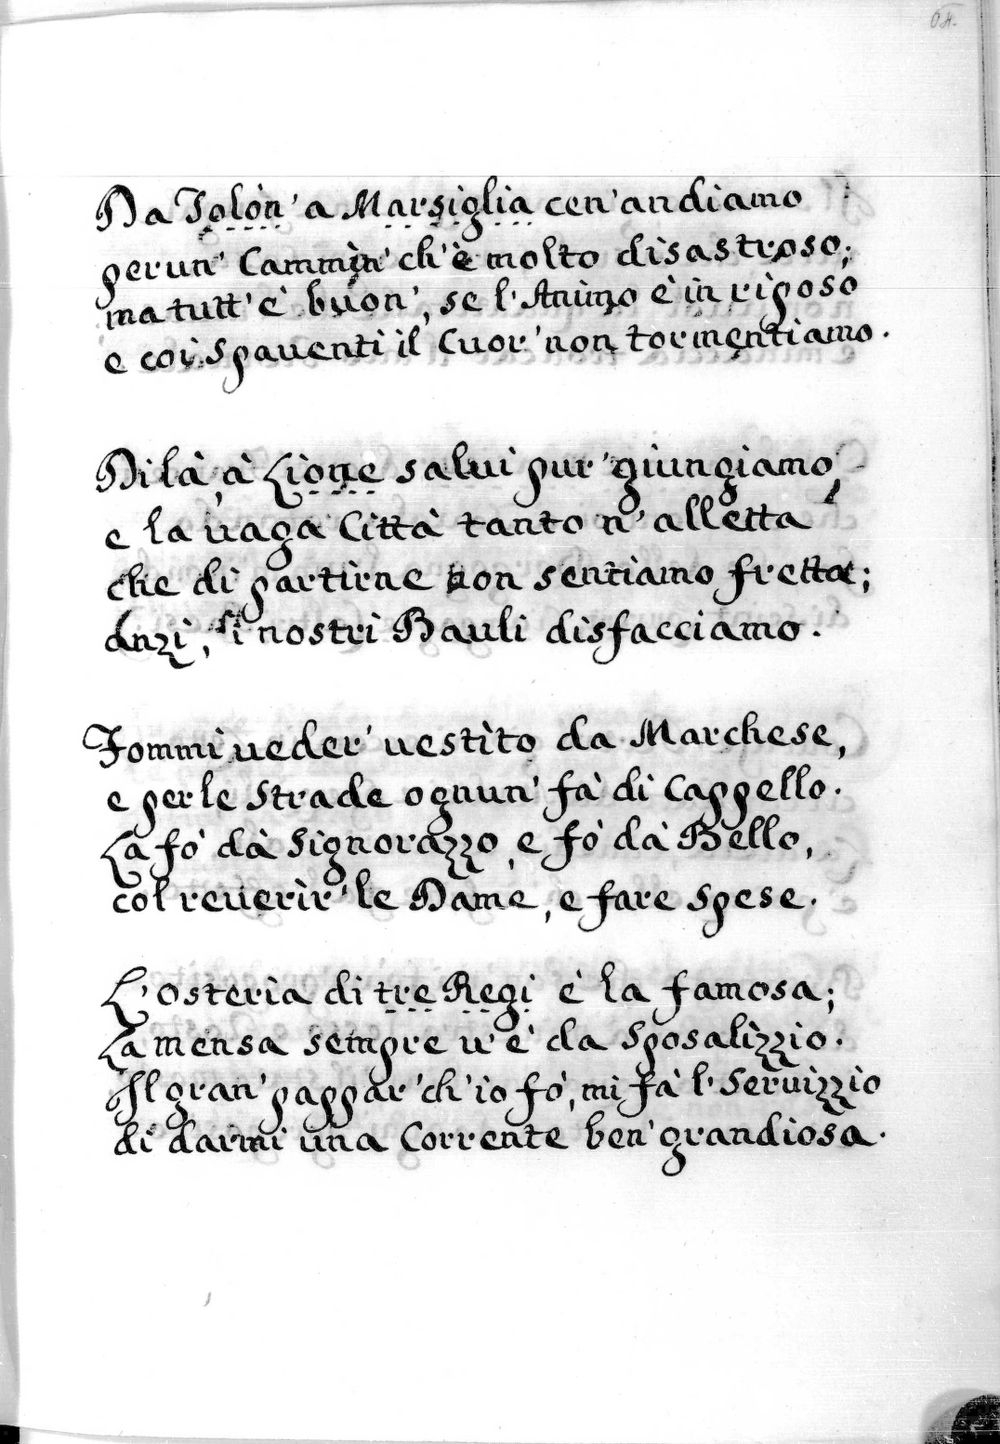 04.
Da Tolòn' a Marsiglia cen' andiamo
per un' Cammin' ch'è molto disastroso;
ma tutt' è buon', se l'Animo è in riposo
e coi spaventi il Cuor' non tormentiamo.
Di là, à Lione salvi pur' giungiamo,
e la vaga Città tanto n' alletta
che di partirne non sentiamo fretta;
Anzi, i nostri Bauli disfacciamo.
Fommi veder' vestito da Marchese,
e per le Strade ognun' fà di Cappello.
La fò dà Signorazzo, e fò dà Bello,
col reverir' le Dame, e fare Spese.
L'osteria di tre Regi è la famosa;
La mensa sempre v'è da Sposalizzio.
Il gran' pappar' ch'io fò, mi fà l'Servizzio
di darmi una Corrente ben' grandiosa.